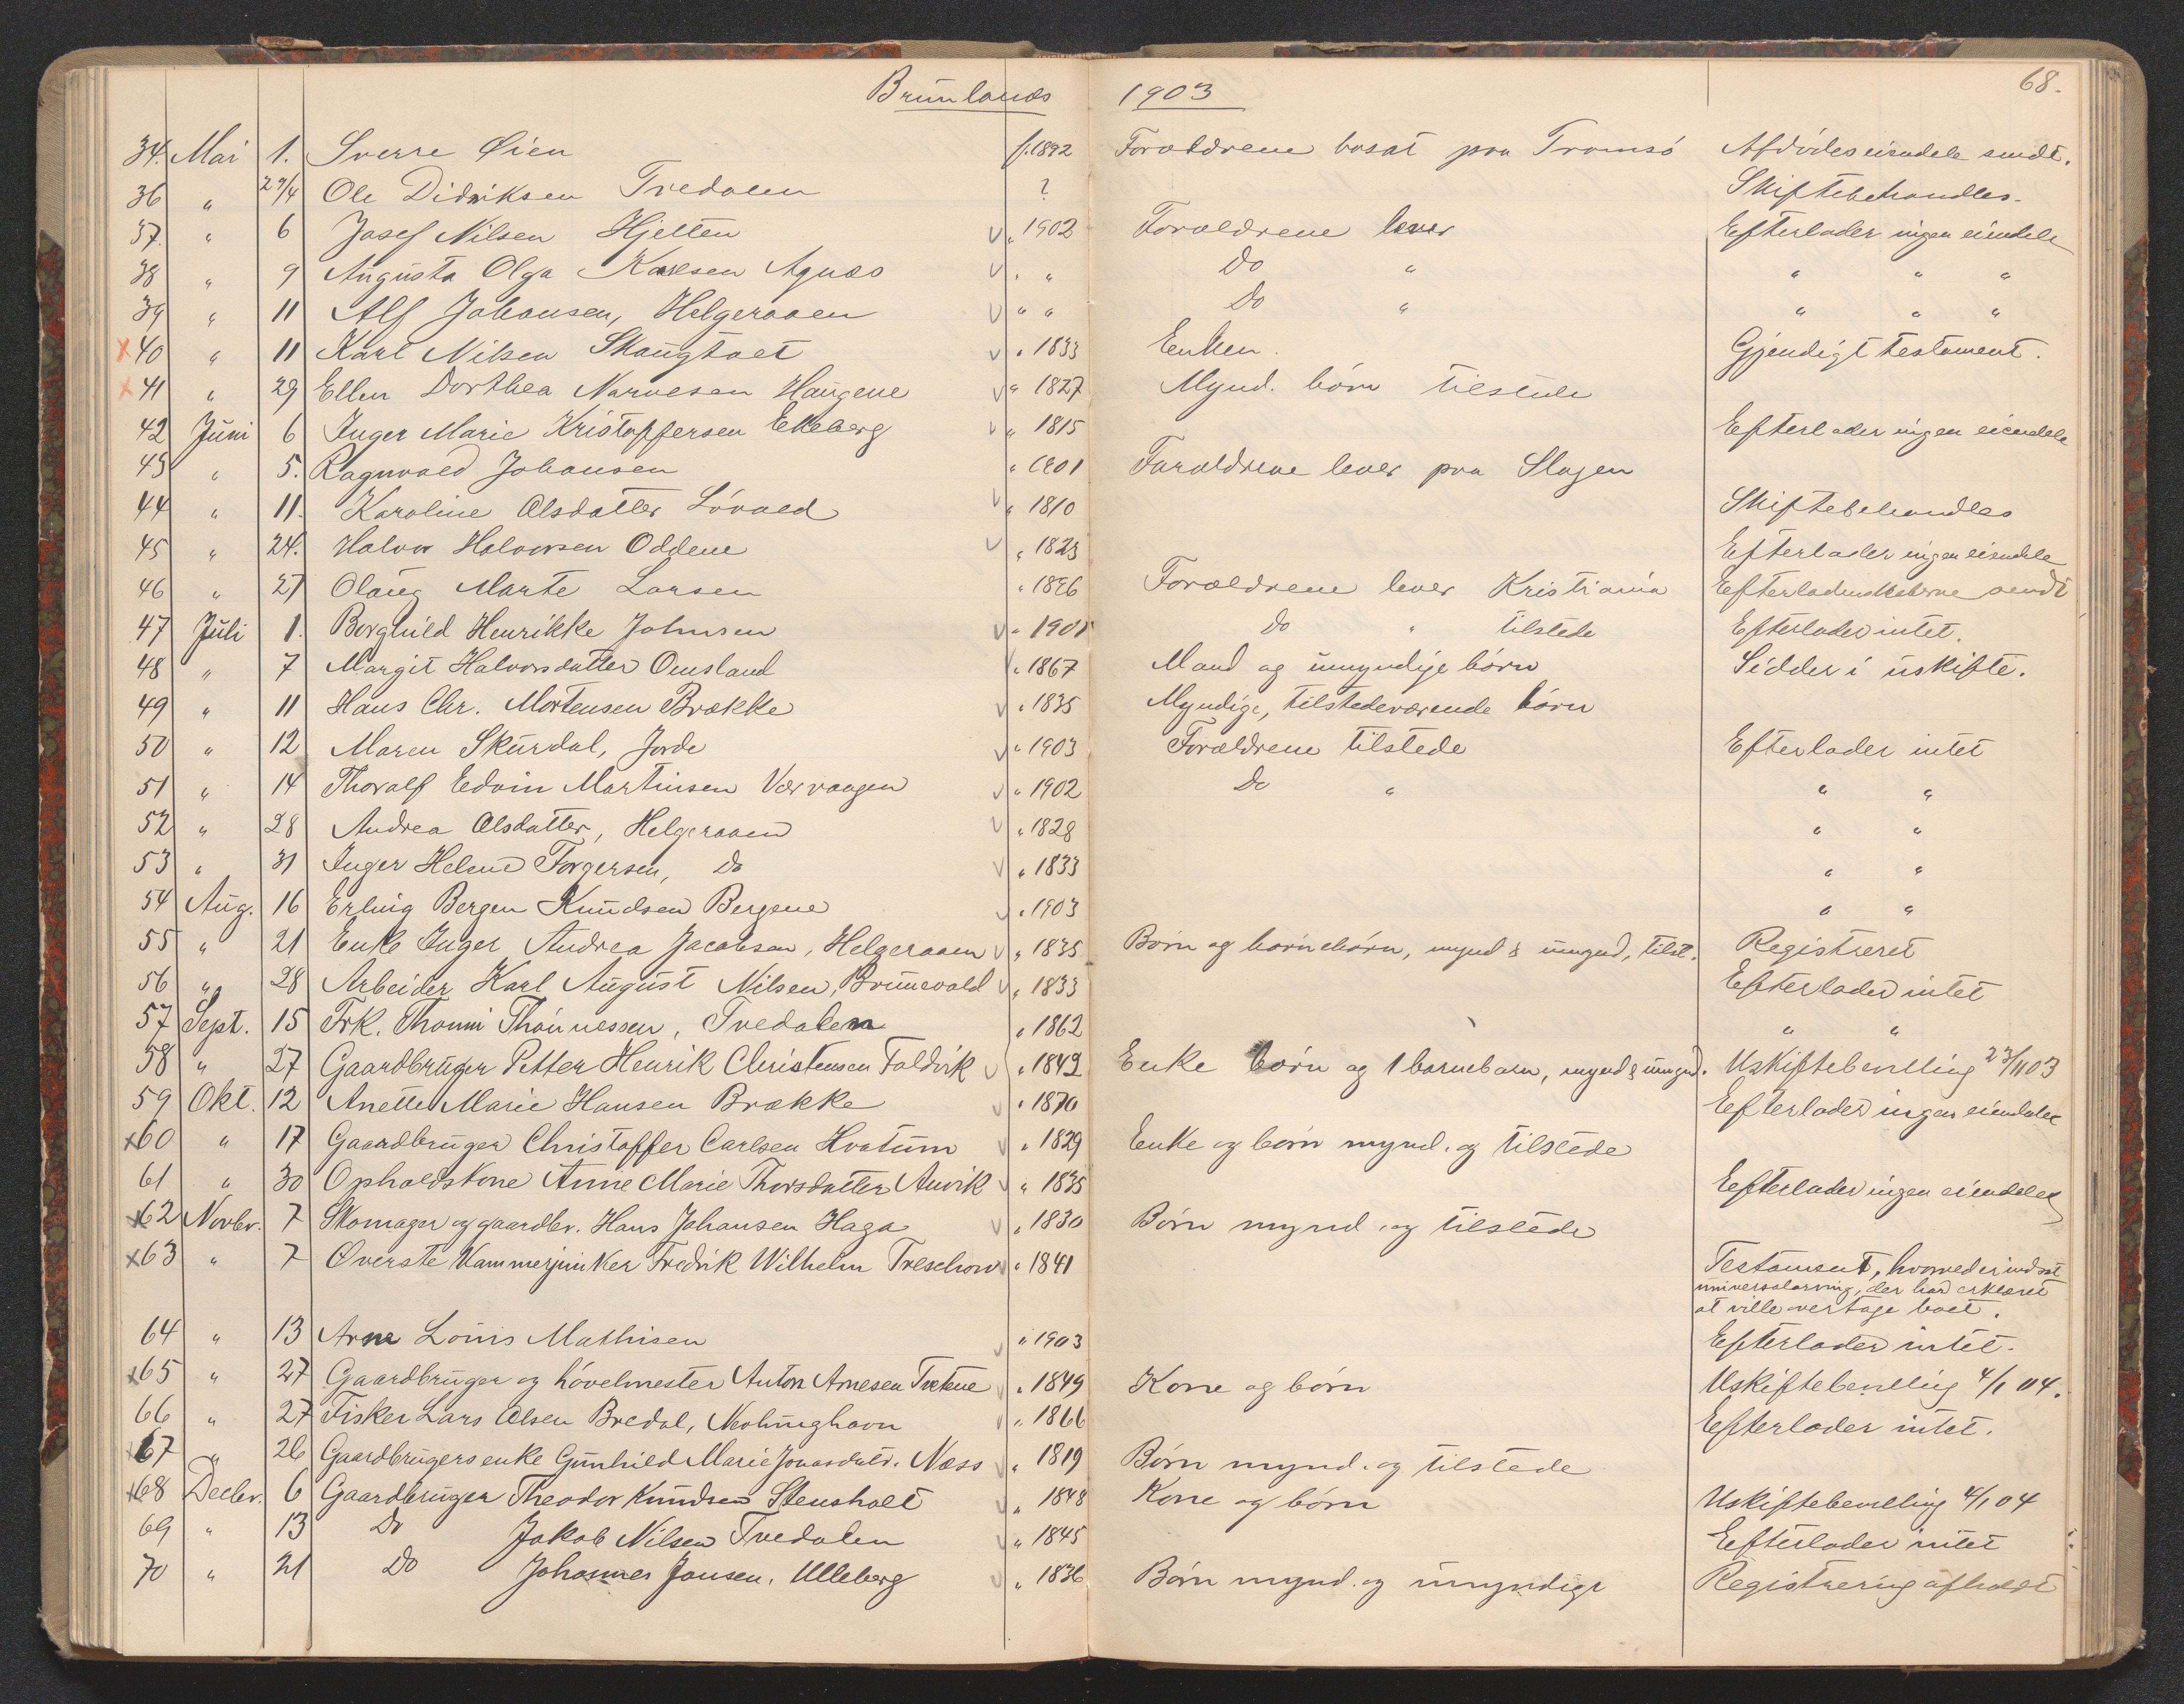 Brunlanæs 1903 68.
34. Mai 1. Sverre Øien f. 1892 Forældrene bosat paa Tromsö Afdödes eiendele sendt.
36 " 29/4 Ole Didriksen Tvedalen ? Skiftebehandles.
37. " 6 Josef Nilsen Hjelten v " 1902 Forældrene lever Efterlader ingen eiendele
38 " 9 Augusta Olga Karlsen Agnæs v " " Do " " " "
39 " 11 Alf Johansen, Helgeraaen v " " Do " " " "
x 40 " 11 Karl Nilsen Skaugtvet v " 1833 Enken. Gjensidigt testament.
x 41 " 29 Ellen Dorthea Narvesen Haugene v " 1827 Mynd. börn tilstede
42 Juni 6 Inger Marie Kristoffersen Ekeberg v " 1815 Efterlader ingen eiendele
43 " 5. Ragnvald Johansen " 1901 Forældrene lever paa Slagen
44 " 11. Karoline Olsdatter Lövald v " 1810 Skiftebehandles
45 " 24. Halvor Halvorsen Oddene v " 1823 Efterlader ingen eiendele
46 " 27 Olaug Marte Larsen " 1896 Forældrene lever Kristiania Efterladenskaberne sendt
47 Juli 1. Borghild Henrikke Johnsen v " 1901 Do " tilstede Efterlader intet.
48 " 7 Margit Halvorsdatter Omsland v " 1867 Mand og umyndige börn Sidder i uskifte.
49 " 11 Hans Chr. Mortensen Brække v " 1835 Myndige, tilstedeværende börn
50 " 12 Maren Skurdal, Jorde v " 1903 Forældrene tilstede Efterlader intet
51 " 14 Thoralf Edvin Martinsen Værvaagen v " 1902 Do " " "
52 " 28 Andrea Olsdatter, Helgeraaen v " 1828 " "
53 " 31 Inger Helene Torgersen, Do v " 1833 " "
54 Aug. 16 Erling Bergen Knudsen Bergene v " 1903 " "
55 " 21 Enke Inger Andrea Jacobsen, Helgeraaen v " 1835 Börn og barnebörn, mynd & umynd, tilst. Registreret
56 " 28 Arbeider Karl August Nilsen, Brunevald v " 1833 Efterlader intet
57 Sept. 15 Frk. Thomi Thönnessen, Tvedalen " 1862 " "
58 " 27 Gaardbruger Petter Henrik Christensen Foldvik v " 1842 Enke börn og 1 barnebarn, mynd & umynd. Uskiftebevilling 23/11 03
59 Okt. 12 Anette Marie Hansen Brække v " 1870 Efterlader ingen eiendele
x60 " 17 Gaardbruger Christoffer Carlsen Hvatum v " 1829 Enke og börn mynd. og tilstede
61 " 30 Opholdskone Anne Marie Thorsdatter Anvik v " 1835 Efterlader ingen eiendele
x62 Novbr. 7 Skomager og gaardbr. Hans Johansen Haga v " 1830 Börn mynd. og tilstede
x63 " 7 Oberste Kammerjunker Fredrik Wilhelm Treschow v " 1841 Testament, hvorved er indsat
universalarving, der har erklæret
at ville overtage boet.
64 " 13 Arne Louis Mathisen v " 1903 Efterlader intet.
x65 " 27 Gaardbruger og hövelmester Anton Arnesen Tvetene v " 1849 Kone og börn Uskiftebevilling 4/1 04.
66 " 27 Fisker Lars Olsen Bredal, Nevlunghavn v " 1866 Efterlader intet.
x67 " 26 Gaardbrugerenke Gunhild Marie Jonasdatr. Næss v " 1819 Börn mynd. og tilstede
x68 Decbr. 6 Gaardbruger Theodor Knudsen Stensholt v " 1848 Kone og börn Uskiftebevilling 4/1 04
69 " 13 Do Jakob Nilsen Tvedalen v " 1845 Efterlader intet
70 " 21 Do Johannes Jansen, Ulleberg v " 1836 Börn mynd. og umyndige Registrering afholdt